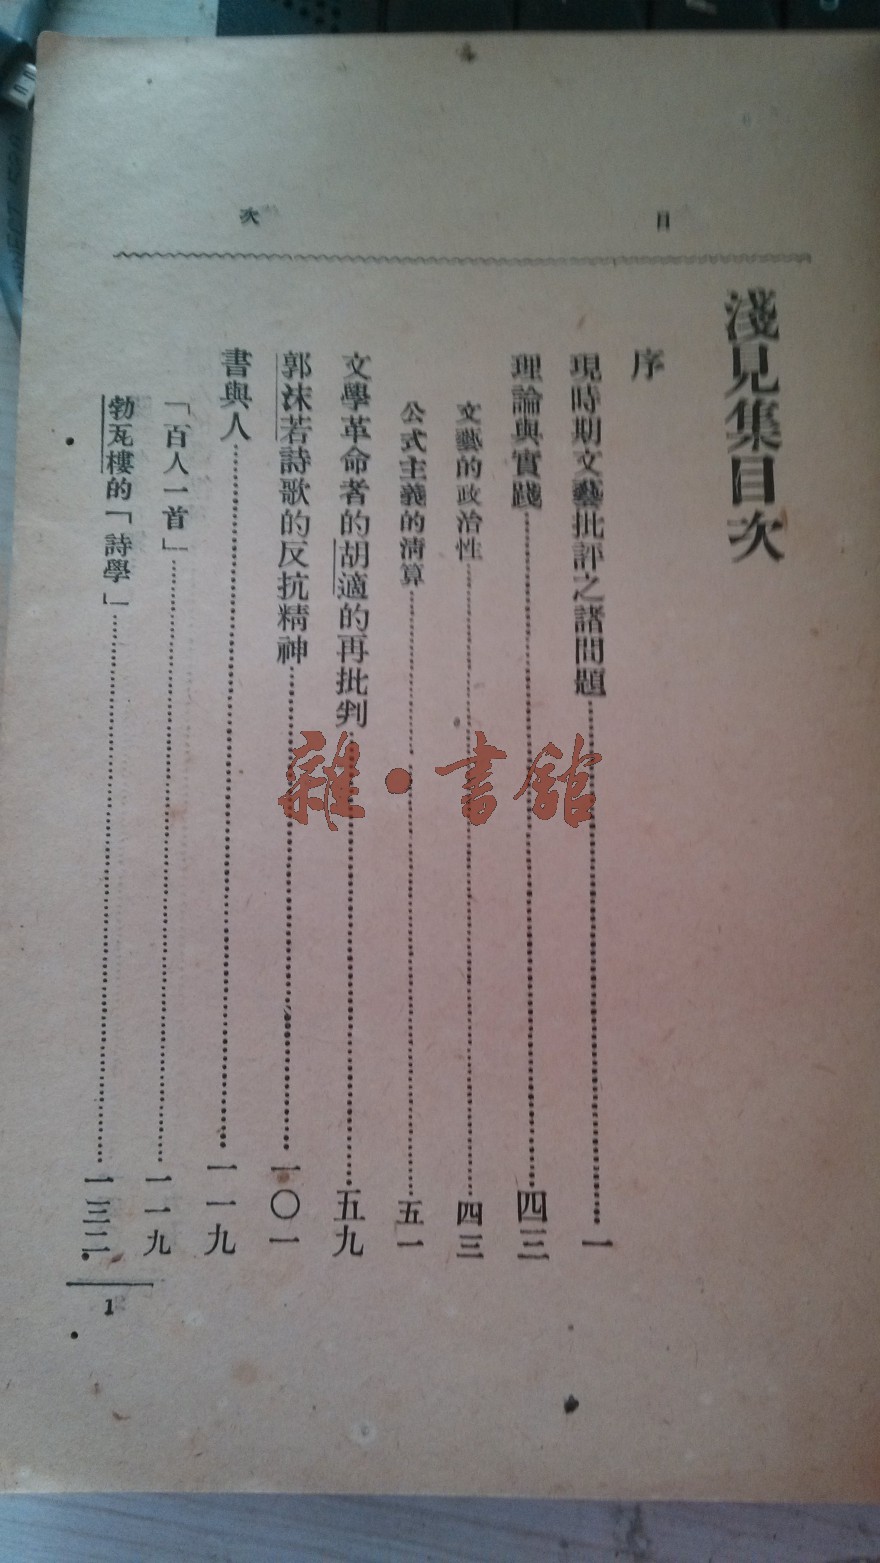 目次
淺見集目次
序
現時期文藝批評之諸問題…………一
理論與實踐…………四三
文藝的政治性…………四三
公式主義的清算…………五一
文學革命者的胡適的再批判…………五九
郭沫若詩歌的反抗精神…………一〇一
書與人…………一一九
「百人一首」…………一一九
勃瓦樓的「詩學」…………一三二
1
雜·書館